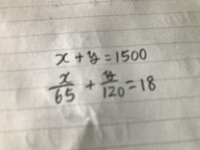 x + y = 1500
x/65 + y/120 = 18